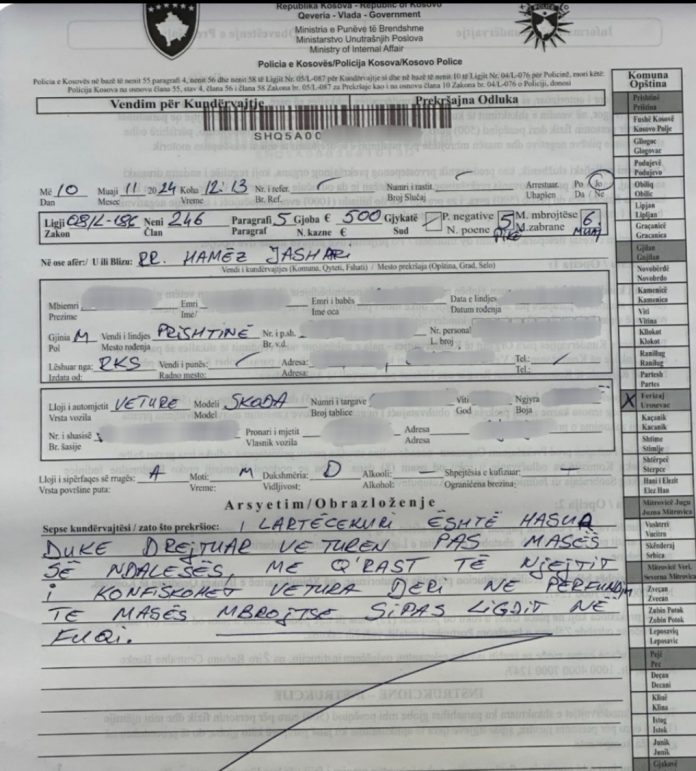 Republika Kosova - Republic of Kosovo
Qeveria - Vlada - Government
Ministria e Punëve të Brendshme
Ministarstvo Unutrašnjih Poslova
Ministry of Internal Affair
Policia e Kosovës/Policija Kosova/Kosovo Police
Policia e Kosovës në bazë të nenit 55 paragrafi 4, nenit 56 dhe nenit 58 të Ligjit Nr. 05/L-087 për Kundërvajtje si dhe në bazë të nenit 10 të Ligjit Nr. 04/L-076 për Policinë, mori këtë:
Policija Kosova na osnovu člana 55, stav 4, člana 56 i člana 58 Zakona br. 05/L-087 za Prekršaje kao i na osnovu člana 10 Zakona br. 04/L-076 o Policiji, donosi
Vendim për Kundërvajtje Prekršajna Odluka
SHQ5A00
Më 10 Muaji 11 2024 Koha 12:13 Nr. i refer. Numri i rastit Arrestuar Po / Jo
Dan Mesec Vreme Br. Ref. Broj Slučaj Uhapšen Da / Ne
Ligji 08/L-186 Neni 246 Paragrafi 5 Gjoba € 500 Gjykatë P. negative 5 M. mbrojtëse 6
Zakon Član Paragraf N. kazne € Sud N. poene PIKË M. zabrane MUAJ
Në ose afër:/ U ili Blizu: RR. HAMËZ JASHARI
Vendi i kundërvajtjes (Komuna, Qyteti, Fshati) / Mesto prekršaja (Opština, Grad, Selo)
Mbiemri Emri Emri i babës Data e lindjes
Prezime Ime/ Ime oca Datum rođenja
Gjinia M Vendi i lindjes PRISHTINË Nr. i p.sh. Nr. personal
Pol Mesto rođenja Br. v.d. L. broj
Lëshuar nga: RKS Vendi i punës: Adresa: Tel.:
Izdata od: Radno mesto: Adresa: Tel.:
Lloji i automjetit VETURË Modeli SKODA Numri i targave Viti Ngjyra
Vrsta vozila Model Broj tablice God Boja
Nr. i shasisë Pronari i mjetit Adresa
Br. šasije Vlasnik vozila Adresa
Lloji i sipërfaqes së rrugës: A Moti: M Dukshmëria: D Alkooli: — Shpejtësia e kufizuar: —
Vrsta površine puta: Vreme: Vidljivost: Alkohol: Ograničena brzina:
Arsyetim/Obrazloženje
Sepse kundërvajtësi / zato što prekršioc: I LARTËCEKURI ËSHTË HASUR
DUKE DREJTUAR VETUREN PAS MASËS
SË NDALESËS ME Q'RAST TË NJEJTIT
I KONFISKOHET VETURA DERI NE PËRFUNDIM
TE MASËS MBROJTSE SIPAS LIGJIT NË
FUQI.
Komuna
Opština
Prishtinë
Priština
Fushë Kosovë
Kosovo Polje
Gllogoc
Glogovac
Podujevë
Podujevo
Obiliq
Obilić
Lipjan
Lipljan
Graçanicë
Gracanica
Gjilan
Gnjilan
Novobërdë
Novobrdo
Kamenicë
Kamenica
Viti
Vitina
Kllokot
Klokot
Ranillug
Ranilug
Partesh
Parteš
X Ferizaj
Uroševac
Kaçanik
Kačanik
Shtime
Štimlje
Shtërpcë
Štrpce
Hani i Elezit
Elez Han
Mitrovicë Jugu
Južna Mitrovica
Vushtrri
Vučitrn
Skënderaj
Srbica
Mitrovicë Veri.
Severna Mitrovica
Zveçan
Zvečan
Zubin Potok
Zubin Potok
Leposaviq
Leposavić
Pejë
Peć
Deçan
Dečani
Klinë
Klina
Istog
Istok
Junik
Junik
Gjakovë